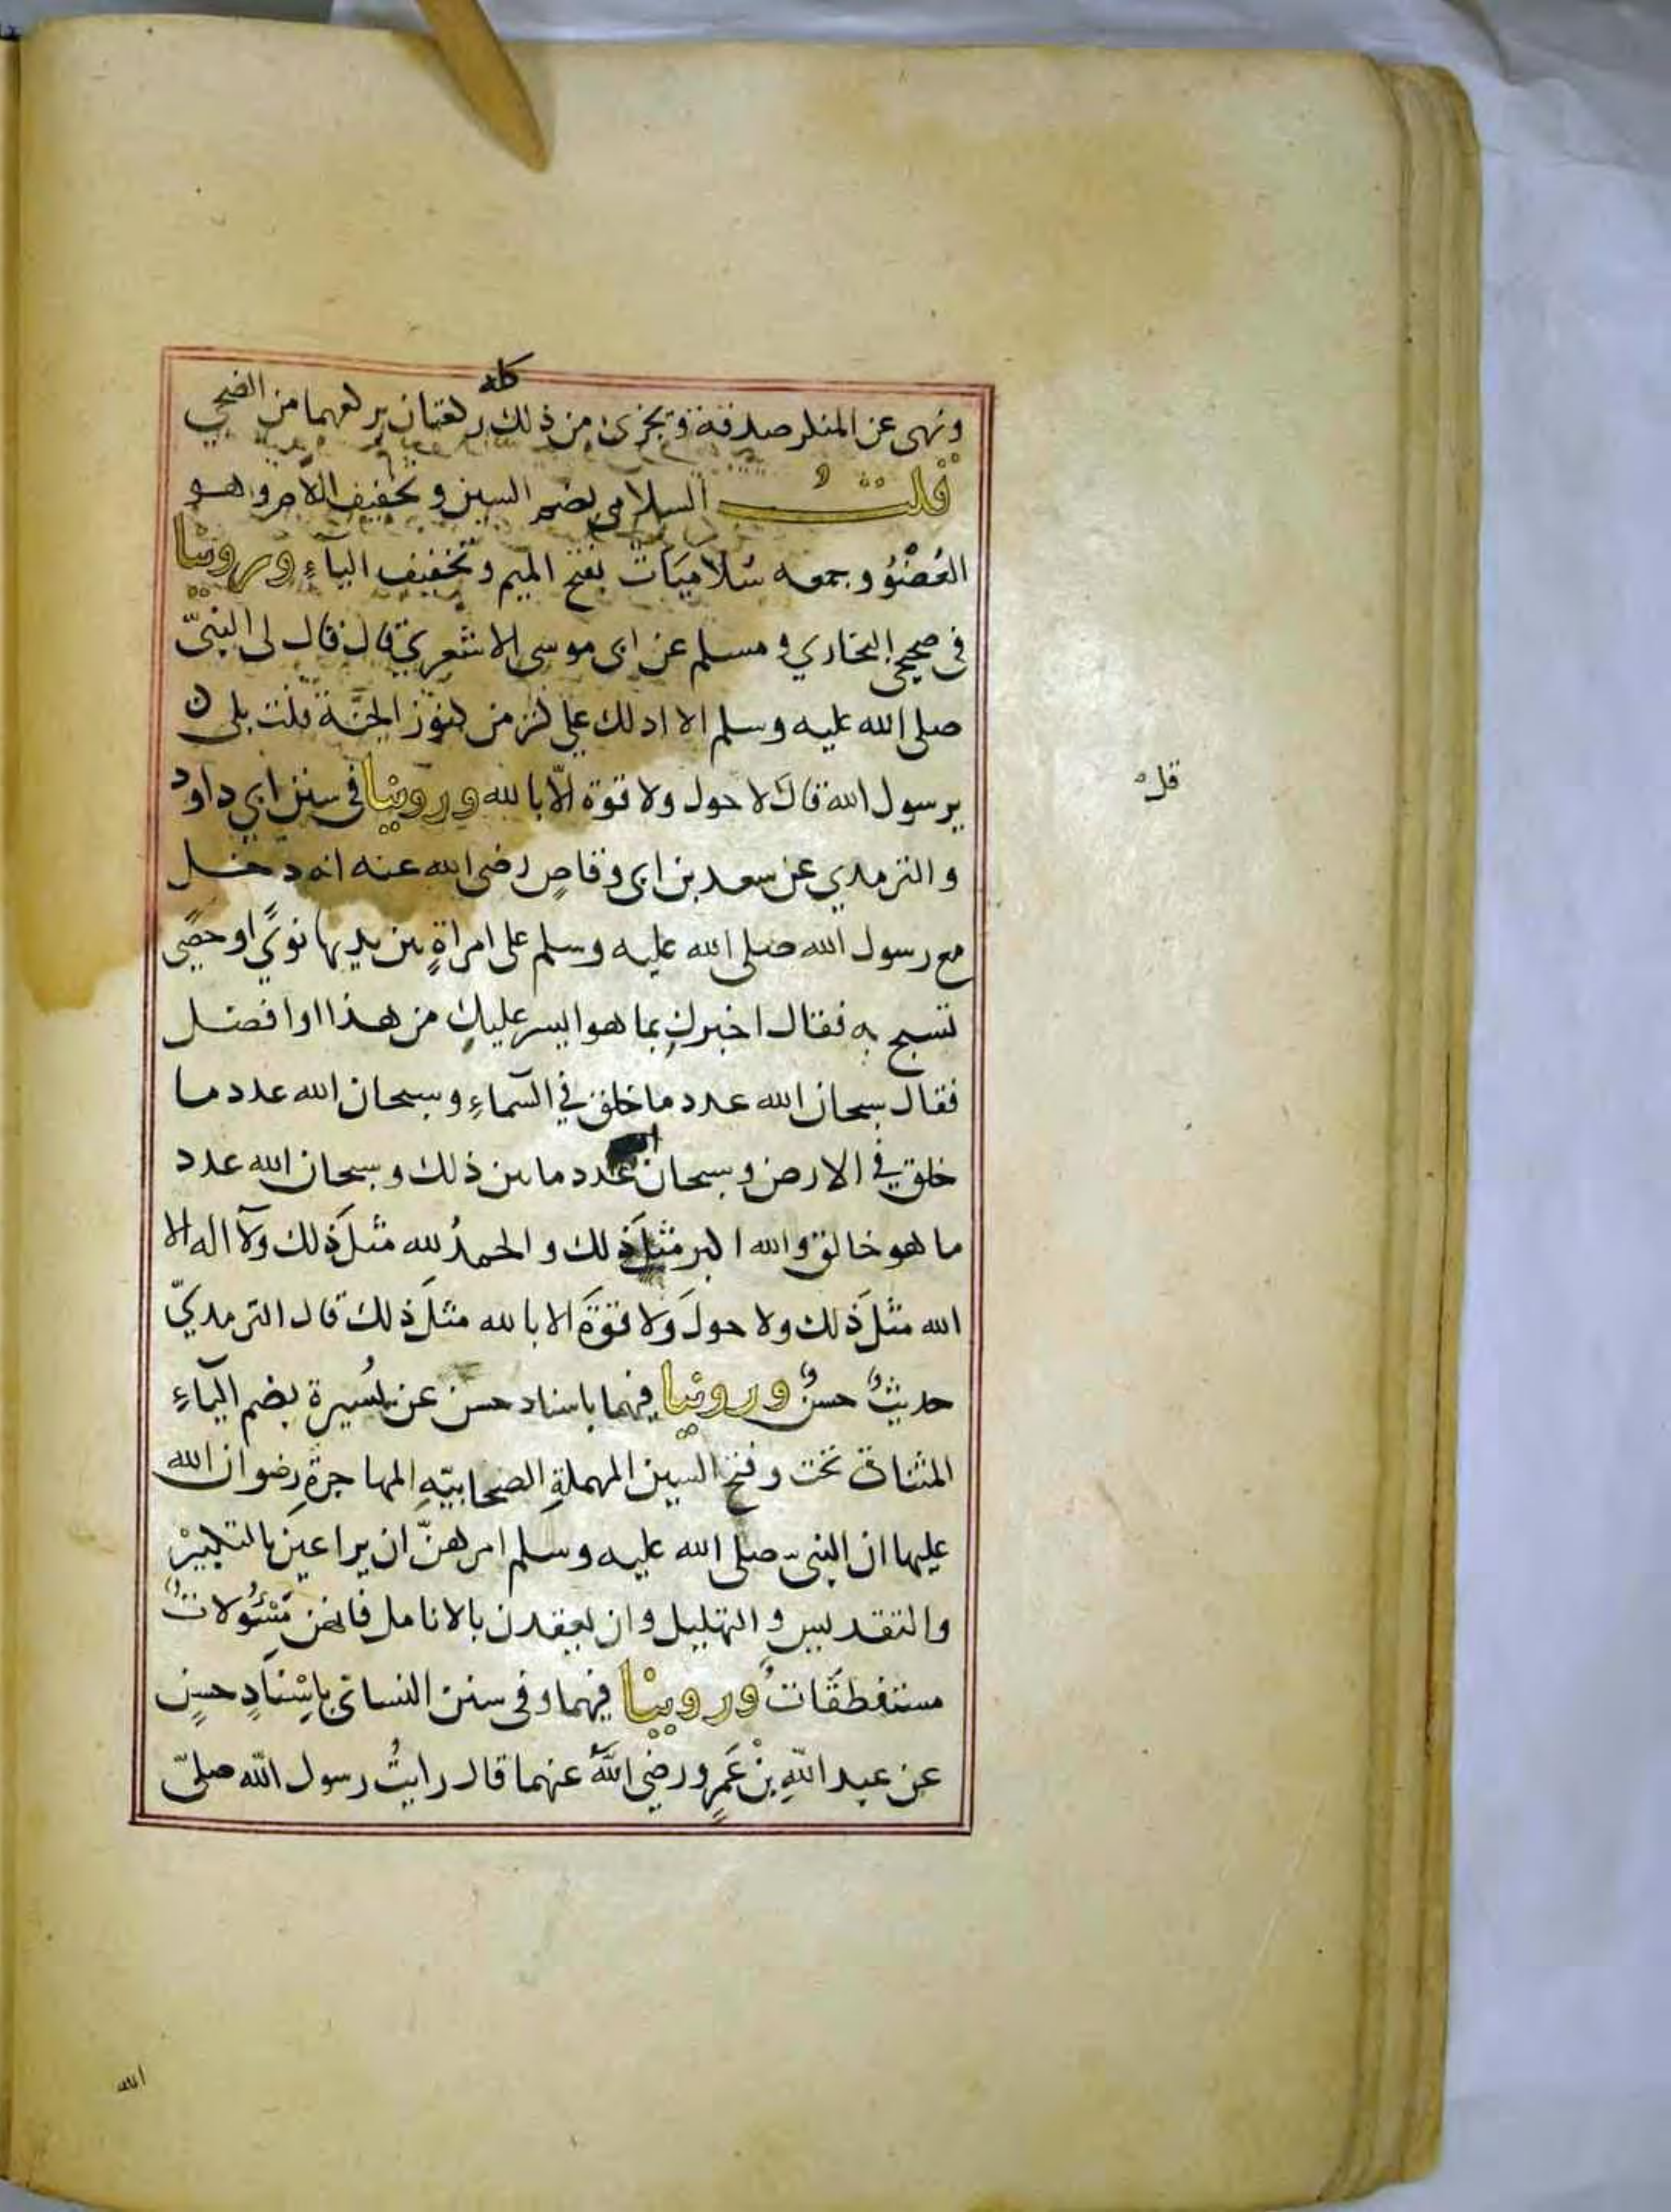 كله
ونهى عن المنكر صدقة وتجزئ من ذلك ركعتان يركعهما من الضحى
قلتُ السلامى بضم السين وتخفيف اللام وهو
العُضْوُ وجمعه سُلاميَات بفتح الميم وتخفيف الياءِ وروينا
فى صحيحى البخاري ومسلم عن ابى موسى الاشعرىّ قال قال لى النبىّ
صلى الله عليه وسلم الا ادلك على كنز من كنوز الجنَّة قلت بلى
يرسول الله قال لا حول ولا قوة الّا بالله وروينا فى سنن ابي داود
والترمدي عن سعد بن ابى وقاصٍ رضى الله عنه انه دخل
مع رسول الله صلى الله عليه وسلم على امراةٍ بين يديها نوىً او حصًى
تسبح به فقال اخبركِ بما هو ايسر عليكِ من هذا او افضل
فقال سبحان الله عدد ما خلق في السّماءِ وسبحان الله عدد ما
خلق في الارض وسبحان الله عدد ما بين ذلك وسبحان الله عدد
ما هو خالق والله اكبر مثلَ ذلك والحمدُ لله مثلَ ذلك ولآ اله الا
الله مثلَ ذلك ولا حولَ ولا قوّةَ الا بالله مثلَ ذلك قال الترمديّ
حديثٌ حسنٌ وروينا فيهما باسناد حسن عن يُسيرة بضم اليآءِ
المثناة تحت وفتح السين المهملةِ الصحابيّهِ المهاجرةِ رضوان الله
عليها ان النبى صلى الله عليه وسلم امرهنّ ان يراعين بالتكبيرْ
والتقديس والتهليل وان يعقدن بالانامل فانهن مَسْئُولاتٌ
مستنطقَاتٌ وروينا فيهما وفى سنن النسائى باِسْنَادٍ حسنٍ
عن عبد اللّهِ بْن عَمرٍو رضىَ اللّهُ عنهما قال رايتُ رسول اللّه صلىّ
قلت
الله